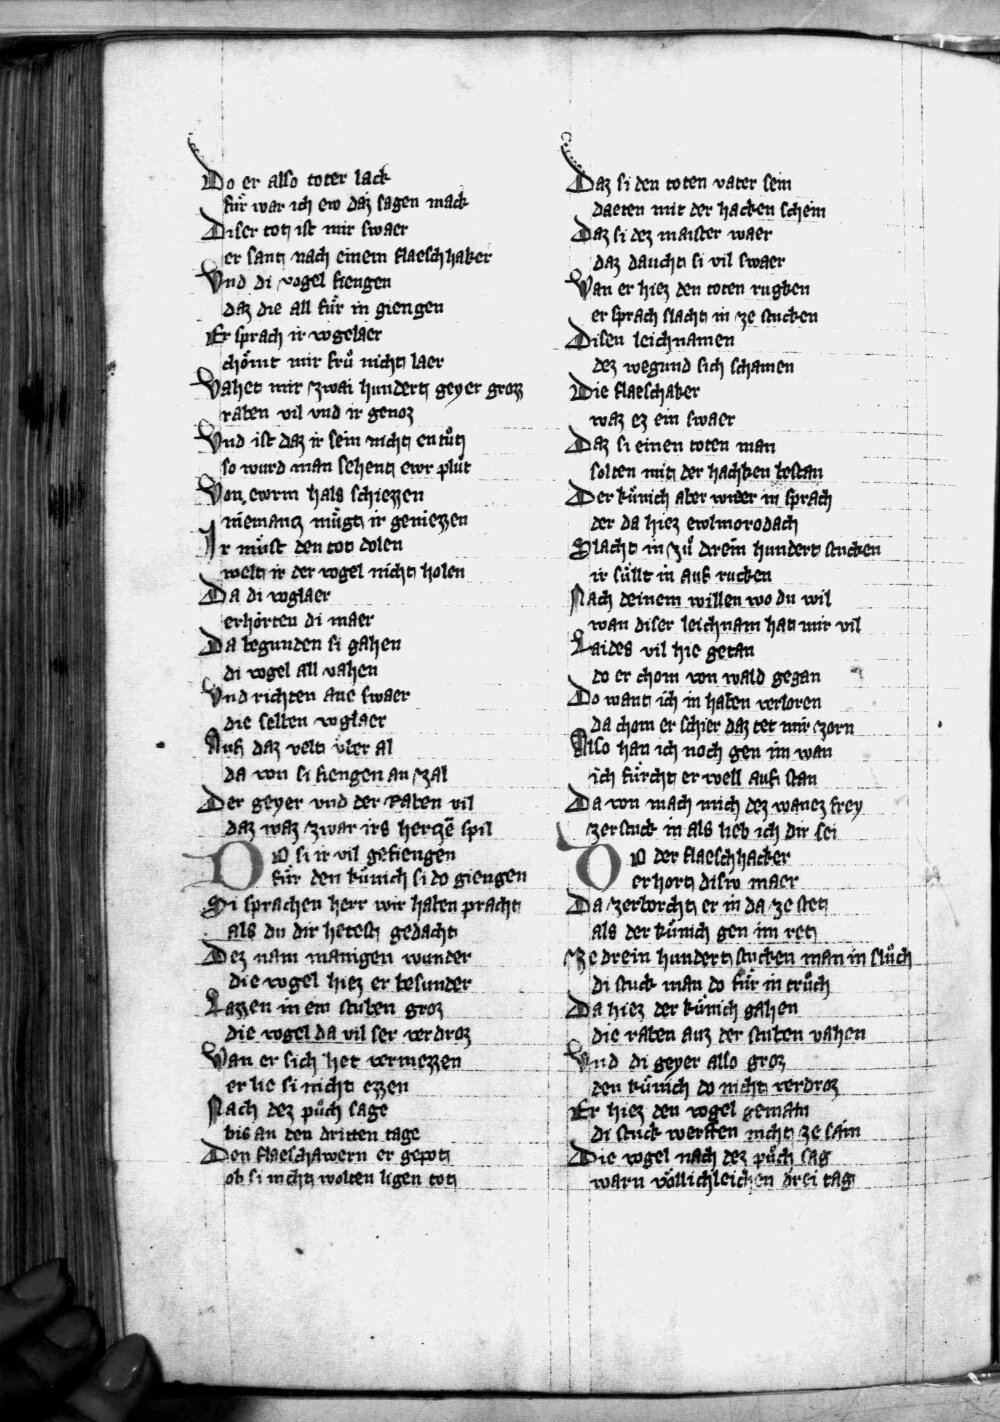 Do er also toter lack
fuͤr war ich ew daz sagen mack
Diser tot ist mir swaer
er sant nach einem flaeschhaker
Vnd di vogel fiengen
daz die all fuͤr in giengen
Er sprach ir voglaer
choͤmt mir fruͤ nicht laer
Vahet mir zwai hundert geyer groz
raben vil vnd ir genoz
Vnd ist daz ir sein nicht entuͤt
so wurd man sehent ewr pluͤt
Von ewrm hals schiezzen
niemantz muͤgt ir geniezzen
Ir muͤst den tot dolen
welt ir der vogel nicht holen
Da di voglaer
erhorten di maer
Da begunden si gahen
di vogel all vahen
Vnd richten ane swaer
die selben voglaer
Auf daz velt vber al
da von si fiengen an zal
Der geyer vnd der Raben vil
daz waz zwar irs hertzen spil
Do si ir vil gefiengen
fuͤr den kuͤnich si do giengen
Si sprachen herr wir haben pracht
als du dir hetest gedacht
Dez nam manigen wunder
die vogel hiez er besunder
Lazzen in ein stuben groz
die vogel da vil ser verdroz
Wan er sich het vermezzen
er lie si nicht ezzen
Nach dez puͤch sage
bis an den dritten tage
Den flaeschawern er gepot
ob si nicht wolten ligen tot
Daz si den toten vater sein
daeten mit der hacken schein
Daz si dez maister waer
daz daucht si vil swaer
Wan er hiez den toten rugken
er sprach slacht in ze stucken
Disen leichnamen
dez wegund sich schamen
Die flaeschaker
waz ez ein swaer
Daz si einen toten man
solten mit der hachken bestan
Der kuͤnich aber wider in sprach
der da hiez ewlmorodach
Slacht in zuͤ drein hundert stucken
ir suͤllt in auf rucken
Nach deinem willen wo du wil
wan diser leichnam hat mir vil
Laides vil hie getan
do er chom von wald gegan
Do want ich in haben verloren
da chom er schier daz tet mir zorn
Also han ich noch gen im wan
ich fuͤrcht er well auf stan
Da von mach mich dez wanez frey
zerstuck in als lieb ich dir sei
Do der flaeschhacker
erhort disw maer
Da zerworcht er in da ze stet
als der kuͤnich gen im ret
Ze drein hundert stucken man in sluͤch
di stuck man do fuͤr in truͤch
Da hiez der kuͤnich gahen
die raben auz der stuben vahen
Vnd di geyer also groz
den kuͤnich do nicht verdroz
Er hiez den vogel gemain
di stuck werffen nicht ze sain
Die vogel nach dez puͤch sag
warn voͤllichleichen drei tag